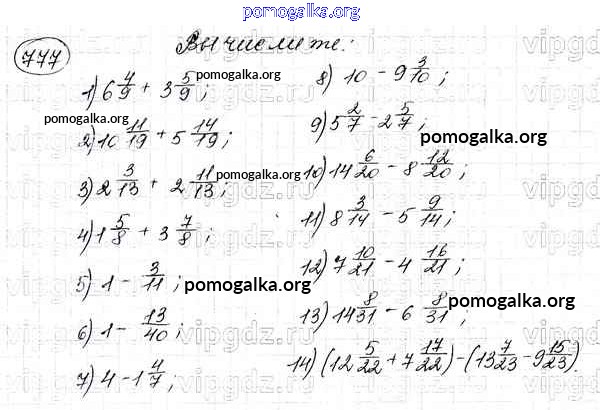 pomogalka.org
777
Вычислите:
1) 6 4/9 + 3 5/9;
2) 10 11/19 + 5 14/19;
3) 2 3/13 + 2 11/13;
4) 1 5/8 + 3 7/8;
5) 1 - 3/11;
6) 1 - 13/40;
7) 4 - 1 4/7;
8) 10 - 9 3/10;
9) 5 2/7 - 2 5/7;
10) 14 6/20 - 8 12/20;
11) 8 3/14 - 5 9/14;
12) 7 10/21 - 4 16/21;
13) 14 8/31 - 6 8/31;
14) (12 5/22 + 7 17/22) - (13 7/23 - 9 15/23).
pomogalka.org
pomogalka.org
pomogalka.org
pomogalka.org
pomogalka.org
pomogalka.org